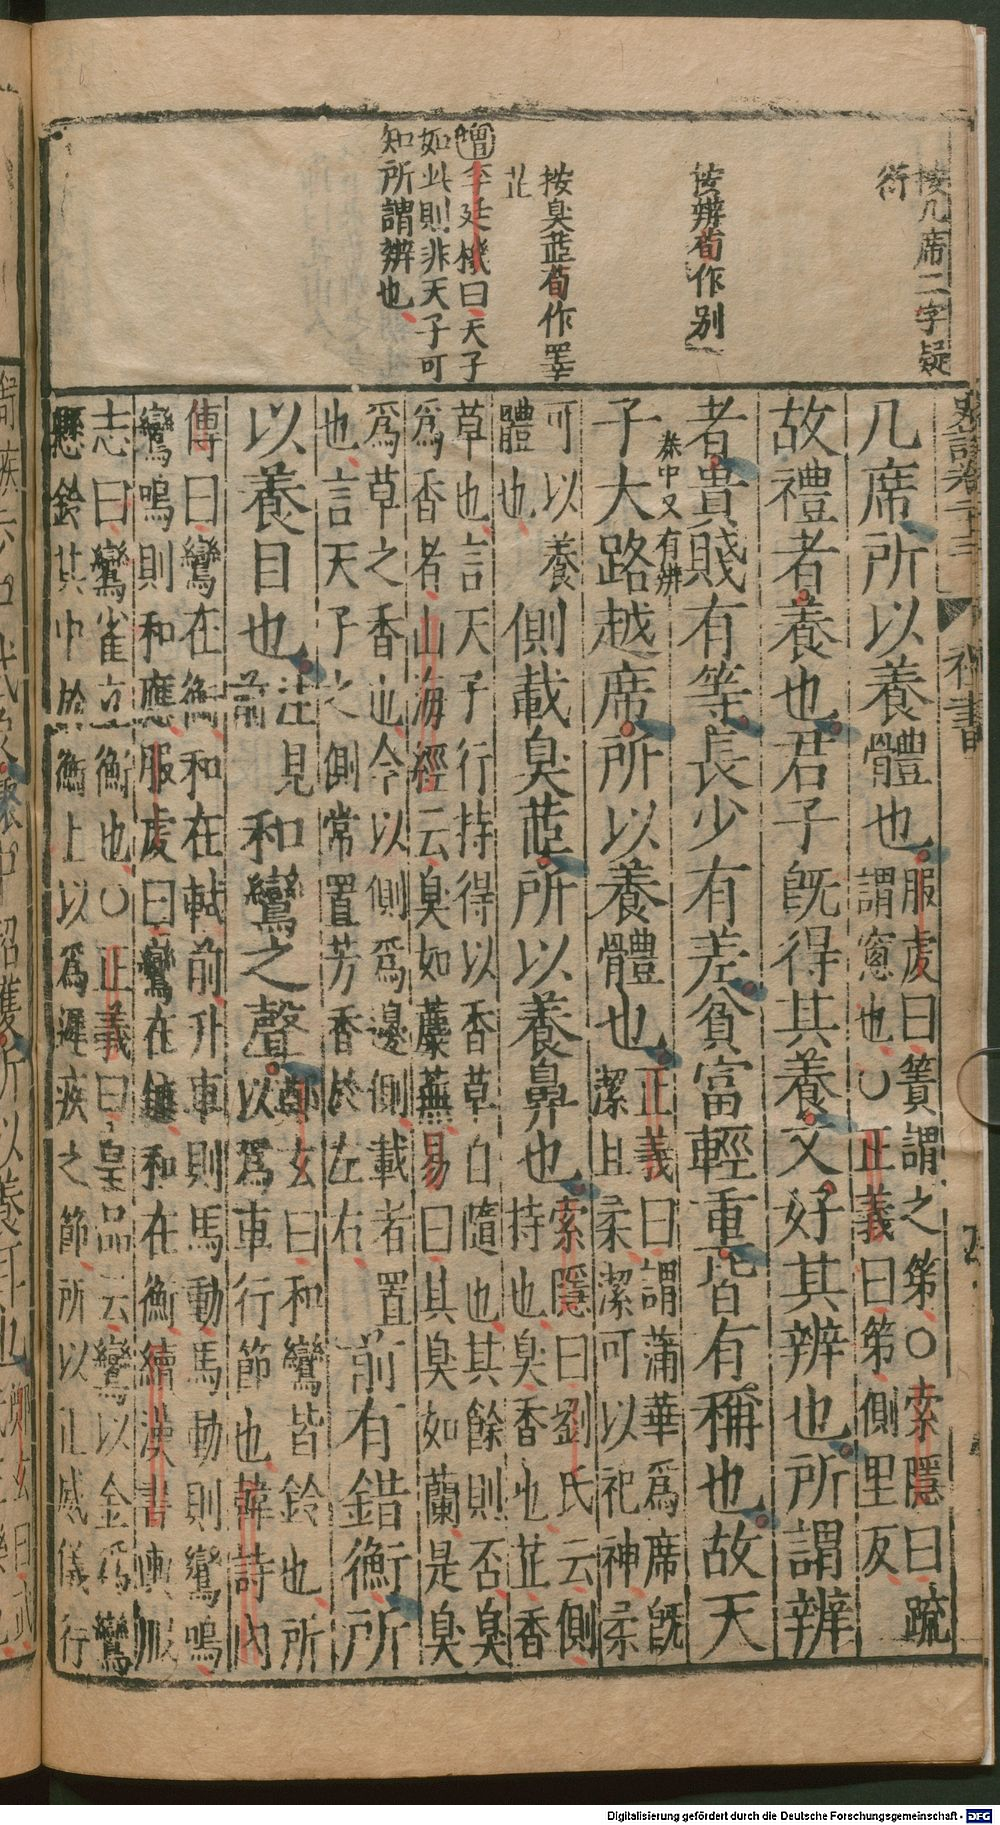 按几席二字疑
衍
按辨荀作别
按臭茝荀作睪
芷
增李廷機曰天子
如此則非天子可
知所謂辨也
史記卷二十三 禮書
几席所以養體也服虔曰簀謂之笫○索隱曰䟽
謂窻也○正義曰笫側里反
故禮者養也君子旣得其養又好其辨也所謂辨
者貴賤有等長少有差貧富輕重皆有稱也故天
秦中又有辨
子大路越席所以養體也正義曰謂蒲華爲席旣
潔且柔潔可以祀神柔
可以養
體也
側載臭茝所以養鼻也索隱曰劉氏云側
持也臭香也芷香
草也言天子行持得以香草自隨也其餘則否臭
爲香者山海經云臭如蘪蕪易曰其臭如蘭是臭
爲草之香也今以側爲邊側載者置
也言天子之側常置芳香於左右
前有錯衡所
以養目也注見
前
和鸞之聲鄭玄曰和鸞皆鈴也所
以爲車行節也韓詩內
傳曰鸞在衡和在軾前升車則馬動馬動則鸞鳴
鸞鳴則和應服虔曰鸞在鑣和在衡續漢書輿服
志曰鸞雀立衡也○正義曰皇品云鸞以金爲鸞
懸鈴其中於衡上以爲遲疾之節所以正威儀行
Digitalisierung gefördert durch die Deutsche Forschungsgemeinschaft - DFG